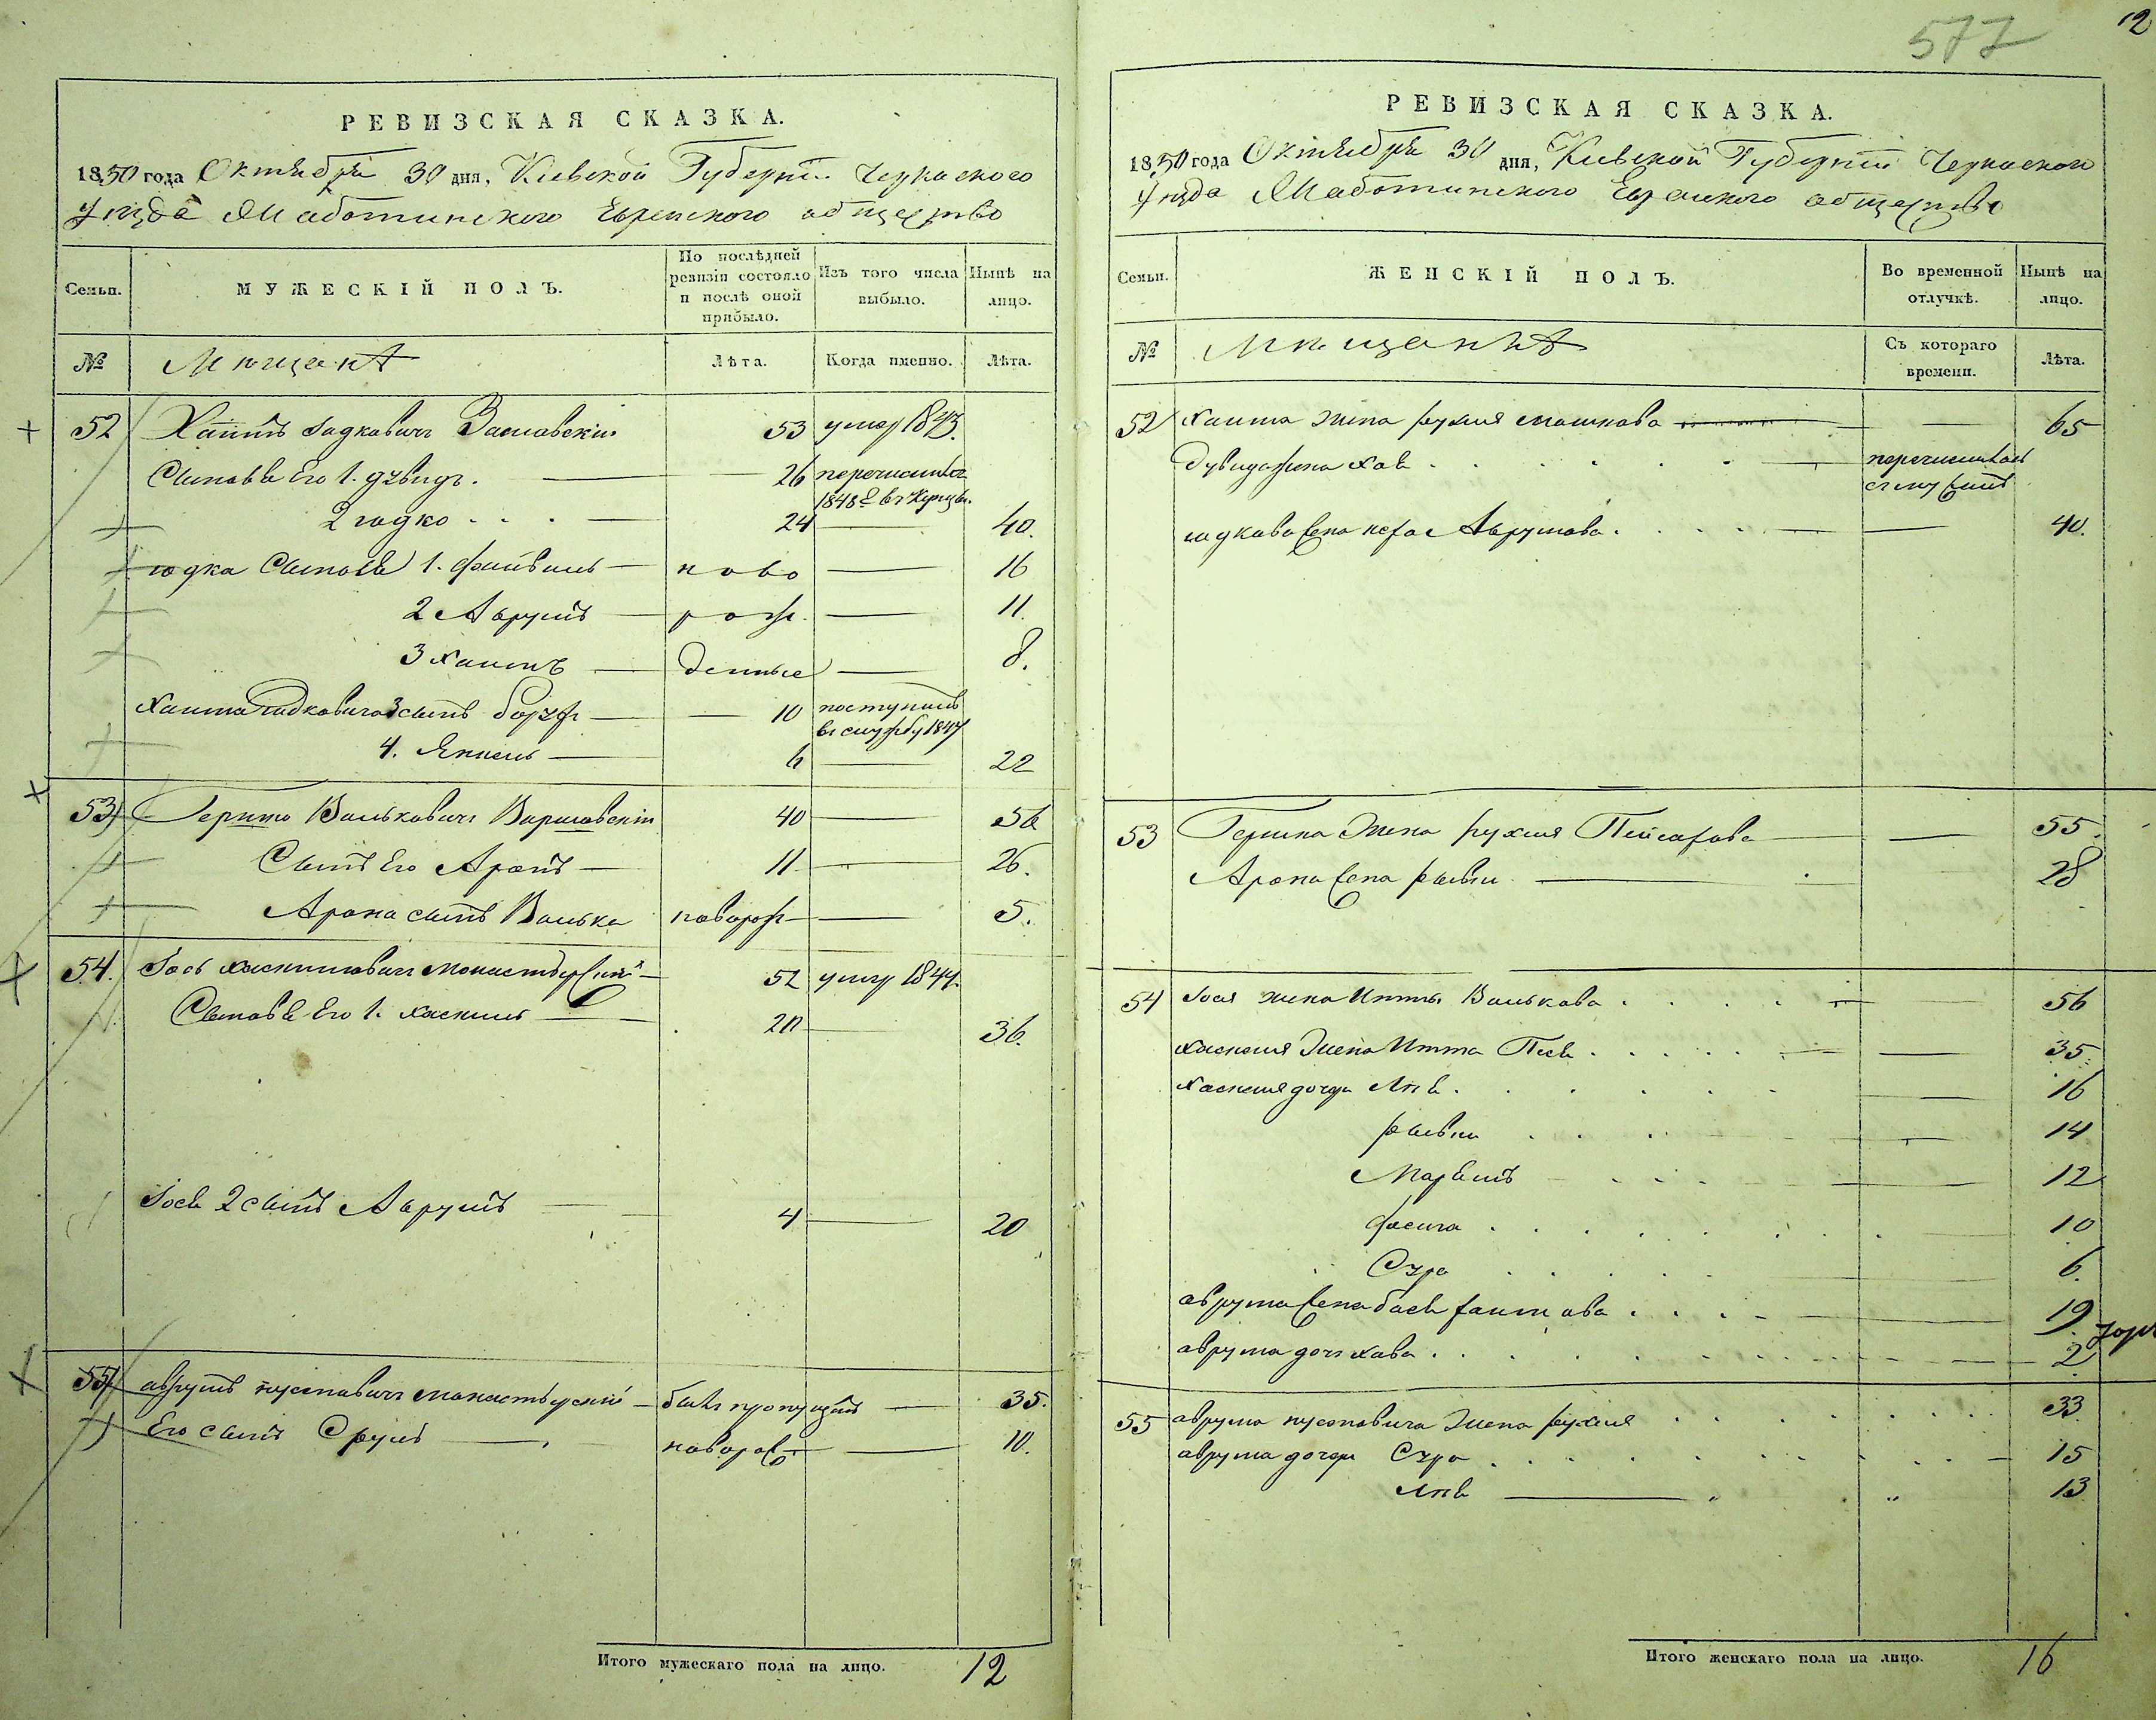 577
12
РЕВИЗСКАЯ СКАЗКА.
1850 года Октября 30 дня, Кіевской Губерніи Черкаского
Уѣзда Мѣщанскаго Еврейского общество
Семьи.
МУЖЕСКІЙ ПОЛЪ.
По послѣдней ревизіи состояло и послѣ оной прибыло.
Изъ того числа выбыло.
Нынѣ на лицо.
№
Мѣщанѣ
Лѣта.
Когда именно.
Лѣта.
52 Хаимъ Іодковичъ Заславскій 53 умер 1843.
Сыновья Его 1. Дувидъ. 26 перечисленъ 1848 г. въ Купцы.
2 Іодко 24 40.
Іодка Сыновья 1. Файвель ново 16
2 Аврумъ рож. 11.
3 Хаимъ денные 8.
Хаима Іодковича 3 сынъ 10 поступилъ въ службу 1847
4. Янкель 6 22
53 Гершко Вольковичъ Варшавскій 40 56
Сынъ Его Аронъ 11 26.
Арона сынъ Волько новорож 5.
54. Іось Хаскилювичъ Монастырскій 52 умер 1844.
Сыновья Его 1. Хаскиль 20 36.
Іося 2 сынъ Аврумъ 4 20
55 аврумъ монастырскій былъ пропущенъ 35.
Его сынъ Сруль новорож 10.
Итого мужескаго пола на лицо. 12
РЕВИЗСКАЯ СКАЗКА.
1850 года Октября 30 дня, Кіевской Губерніи Черкаскои
Уѣзда Еврейского общество
Семьи.
ЖЕНСКІЙ ПОЛЪ.
Во временной отлучкѣ.
Нынѣ на лицо.
№
Мѣщанкѣ
Съ котораго времени.
Лѣта.
52 Хаима жена рухля мошкова 65
Дувида жена Хая перечислилась съ мужемъ
Іодкова жена Аврумова. 40.
53 Гершка Жена рухля Пейсахова 55.
Арона жена рывка 28
54 Іося жена Итта Волькова 56
Хаскеля Жена Итта 35.
Хаскеля дочери 16
рывка 14
Маріамъ 12
фейга 10
Сура 6.
аврума жена бася хаимова 19
аврума дочь хава 2
55 аврума жена рухля 33.
аврума дочери Сура 15
13
Итого женскаго пола на лицо. 16